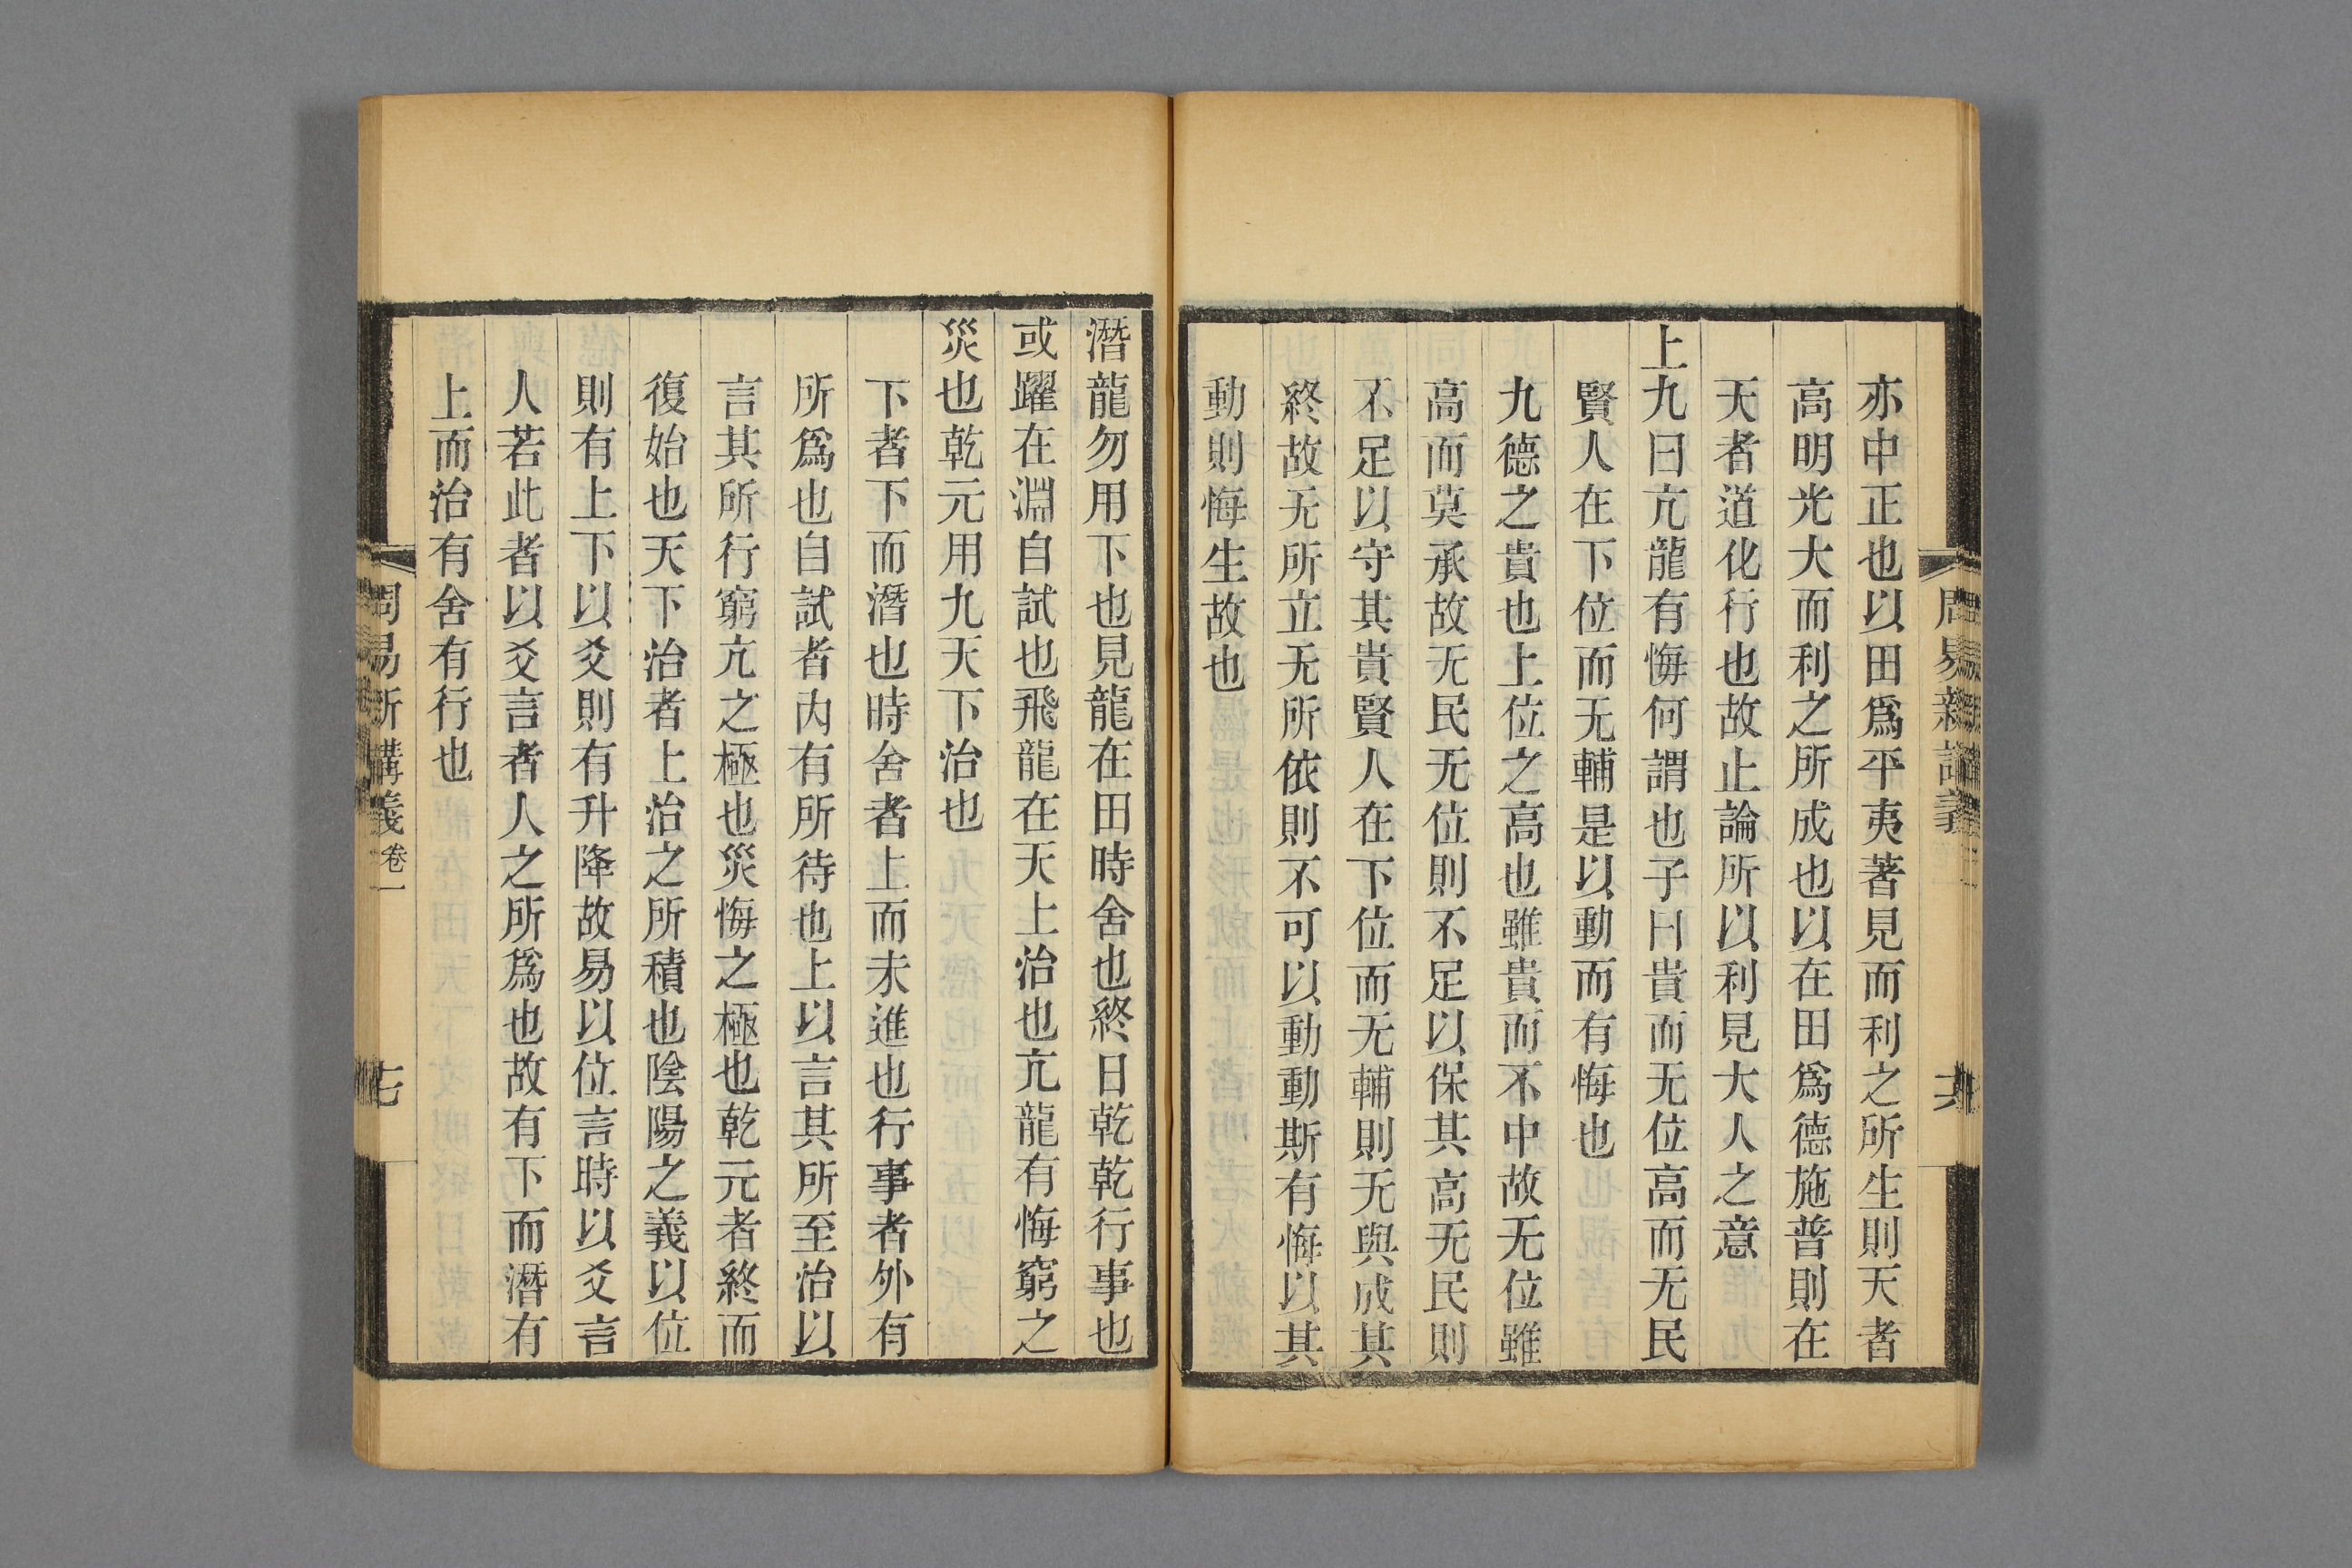 周易新講義
六
亦中正也以田爲平夷著見而利之所生則天者
高明光大而利之所成也以在田爲德施普則在
天者道化行也故止論所以利見大人之意
上九曰亢龍有悔何謂也子曰貴而无位高而无民
賢人在下位而无輔是以動而有悔也
九德之貴也上位之高也雖貴而不中故无位雖
高而莫承故无民无位則不足以保其高无民則
不足以守其貴賢人在下位而无輔則无與成其
終故无所立无所依則不可以動動斯有悔以其
動則悔生故也
潛龍勿用下也見龍在田時舍也終日乾乾行事也
或躍在淵自試也飛龍在天上治也亢龍有悔窮之
災也乾元用九天下治也
下者下而潛也時舍者上而未進也行事者外有
所爲也自試者內有所待也上以言其所至治以
言其所行窮亢之極也災悔之極也乾元者終而
復始也天下治者上治之所積也陰陽之義以位
則有上下以爻則有升降故易以位言時以爻言
人若此者以爻言者人之所爲也故有下而潛有
上而治有舍有行也
周易新講義卷一
七